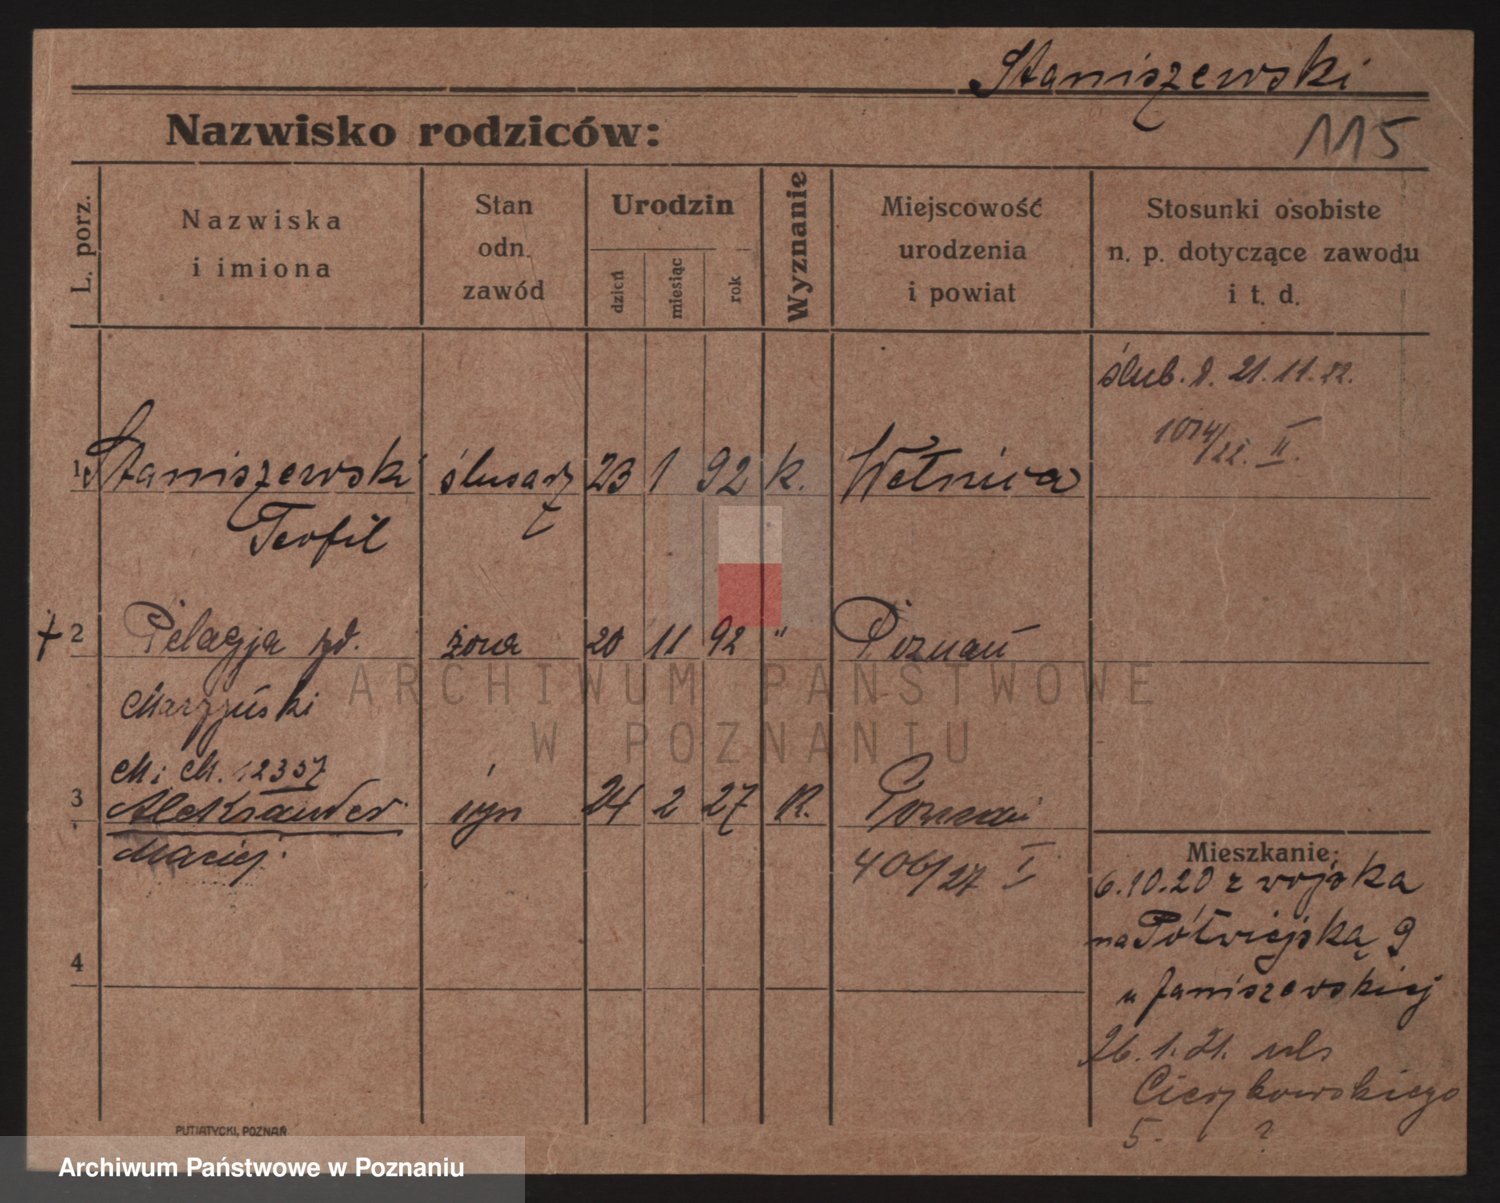 Staniszewski
115
Nazwisko rodziców:
L. porz.
Nazwiska
i imiona
Stan
odn.
zawód
Urodzin
dzień
miesiąc
rok
Wyznanie
Miejscowość
urodzenia
i powiat
Stosunki osobiste
n. p. dotyczące zawodu
i t. d.
ślub. d. 21.11.22.
1014/22. II.
1 Staniszewski ślusarz 23 1 92 k. Wełnica
Teofil
+ 2 Pelagja zd. żona 20 11 92 " Poznań
M. 12357
3 Aleksander syn 24 2 27 K. Poznań
Maciej.
406/27 I
4
Mieszkanie:
6.10.20 z wojska
na Półwiejską 9
u Janiszewskiej
26.1.21. uls
Cieszkowskiego
5. ?
PUTIATYCKI, POZNAŃ
ARCHIWUM PAŃSTWOWE
W POZNANIU
Archiwum Państwowe w Poznaniu